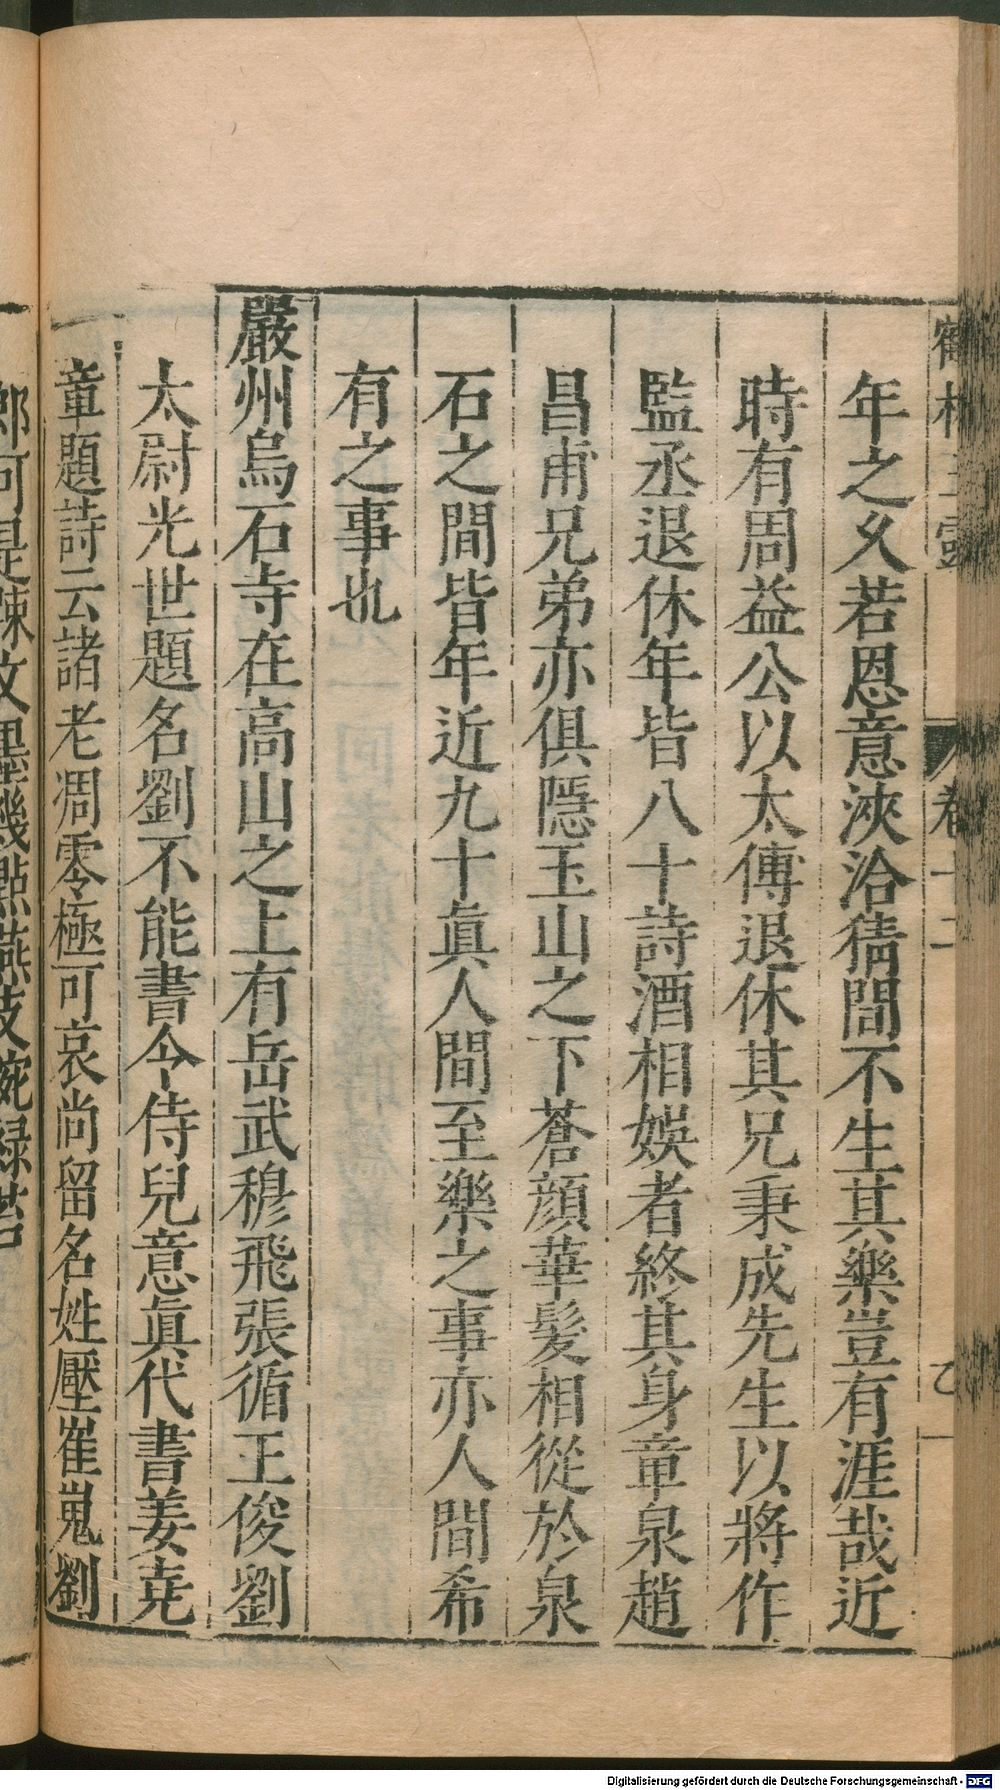 年之久若恩意浹洽猜間不生其樂豈有涯哉近
時有周益公以太傅退休其兄乗成先生以將作
監丞退休年皆八十詩酒相娛者終其身章泉趙
昌甫兄弟亦俱隱玉山之下蒼顏華髮相從於泉
石之間皆年近九十眞人間至樂之事亦人間希
有之事也
嚴州烏石寺在高山之上有岳武穆飛張循王俊劉
太尉光世題名劉不能書令侍兒意眞代書姜堯
章題詩云諸老凋零極可哀尚留名姓壓崔嵬劉
郎可是疎文墨幾點燕支涴綠苔
卷十二
Digitalisierung gefördert durch die Deutsche Forschungsgemeinschaft - DFG